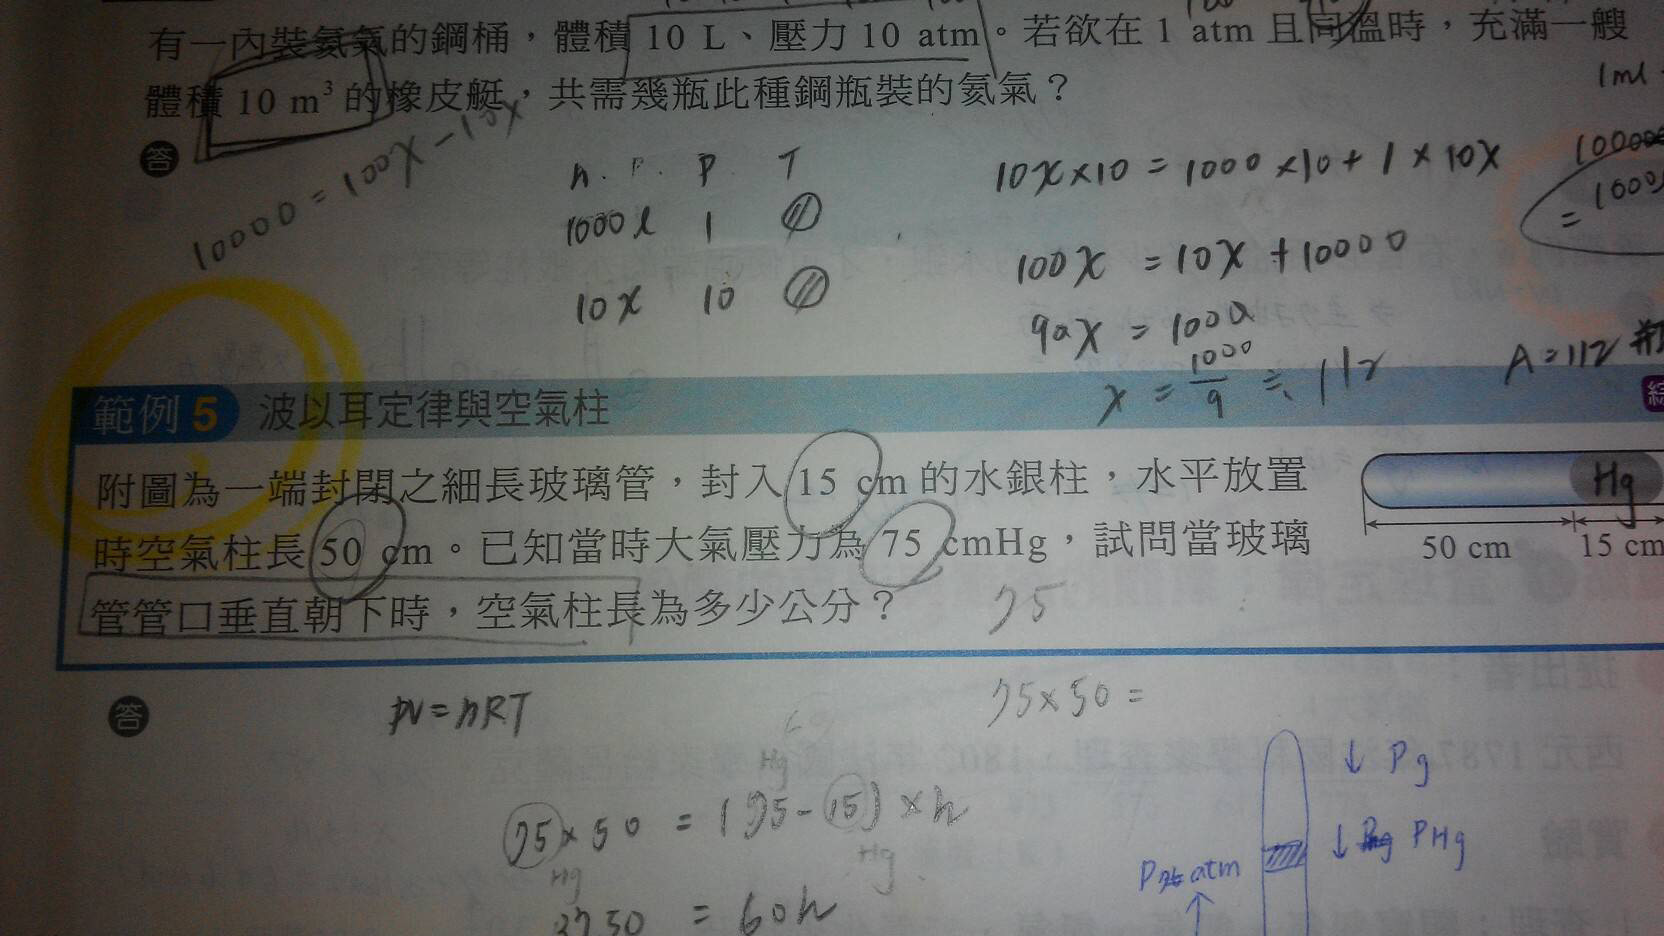 有一內裝氦氣的鋼桶，體積 10 L、壓力 10 atm。若欲在 1 atm 且同溫時，充滿一艘
體積 10 m³ 的橡皮艇，共需幾瓶此種鋼瓶裝的氦氣？
1ml
答
10000 = 100x - 10x
n. P. P T
1000 l 1
10x 10
10x×10 = 1000×10+1×10x
100x = 10x+10000
90x = 1000
x = 1000/9 ≒ 112
A=112 瓶
範例 5 波以耳定律與空氣柱
附圖為一端封閉之細長玻璃管，封入 15 cm 的水銀柱，水平放置
時空氣柱長 50 cm。已知當時大氣壓力為 75 cmHg，試問當玻璃
管管口垂直朝下時，空氣柱長為多少公分？
Hg
50 cm 15 cm
75
答
PV=nRT
75×50=
Hg
75×50 = (75-15)×h
Hg Hg
3750 = 60h
↓ Pg
↓ PHg
atm
↑